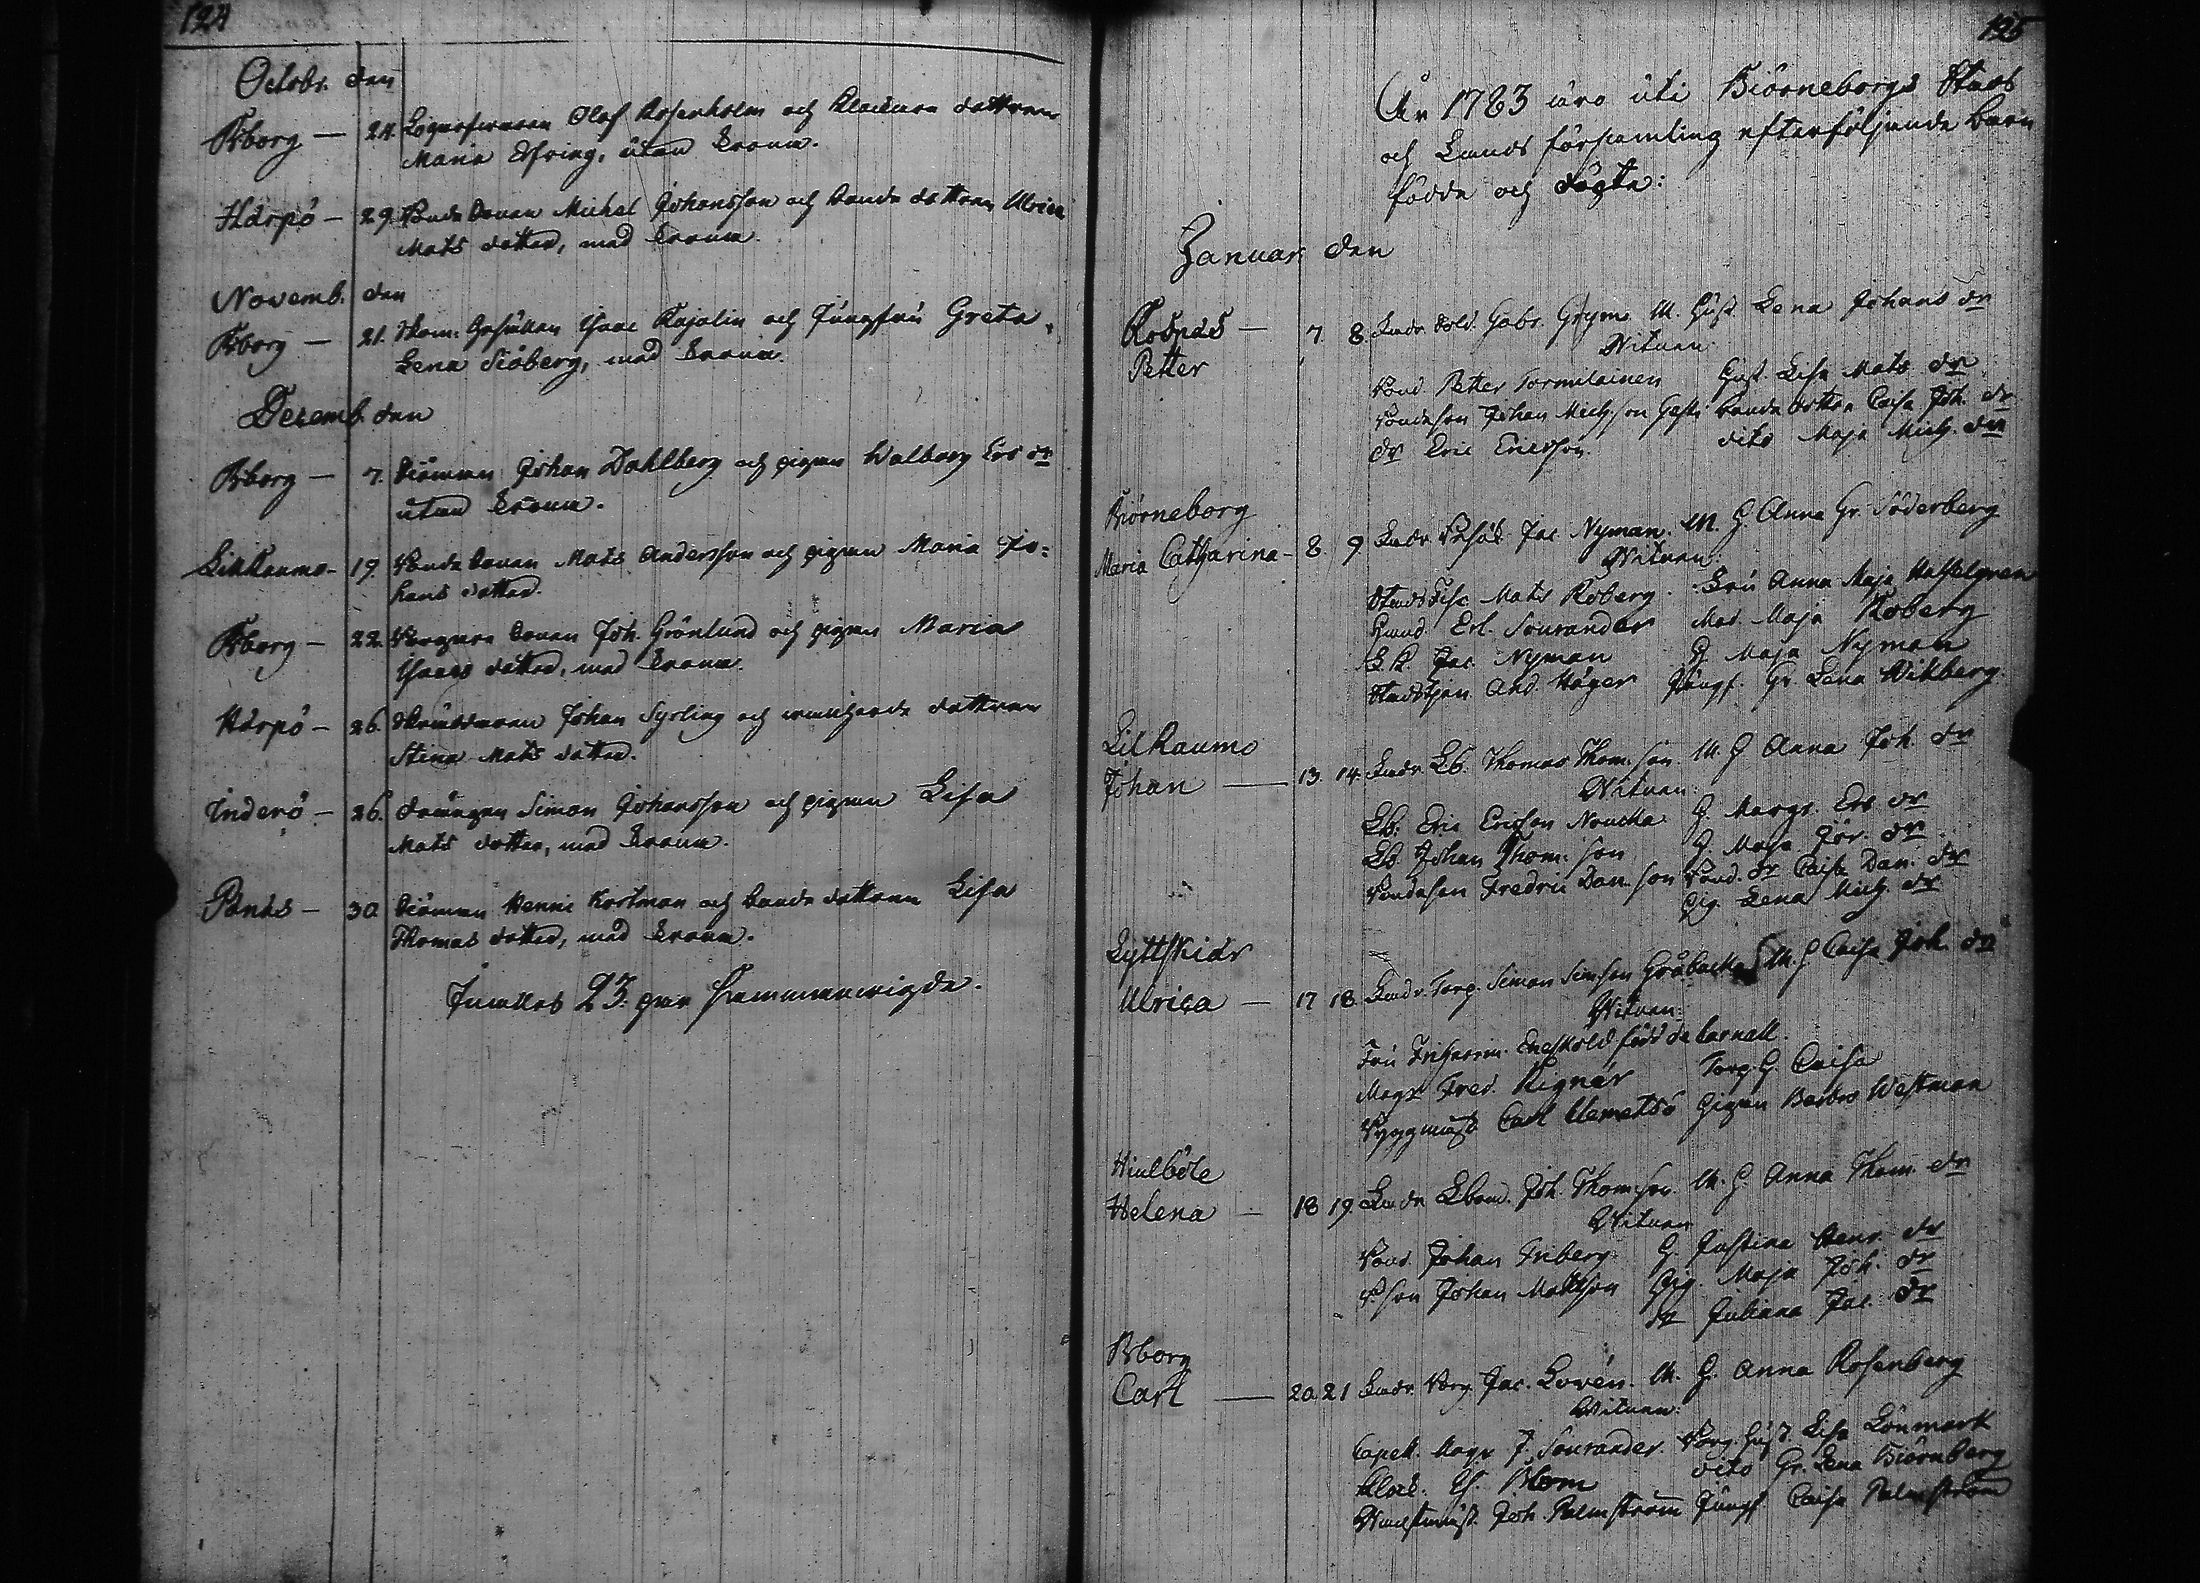 124
Octobr. den
Bborg — 24. Olof Rosenholm och dottren
Maria Elfving, utan krona.
Hårpö — 29. Bonde Michel Johansson och bonde dottren Ulrica
Mats dotter, med krona.
Novemb. den
Bborg — 21. Isaac Kajalin och Jungfru Greta
Lena Siöberg, med krona.
Decemb. den
Bborg — 7. Siöman Johan Dahlberg och pigan Walborg Ers dr
utan krona.
LilRaumo — 19. Bonde Mats Andersson och pigan Maria Jo=
hans dotter.
Bborg — 22. Joh. Grönlund och pigan Maria
Isaacs dotter, med krona.
Hårpö — 26. Johan Syrling och dottren
Stina Mats dotter.
Inderö — 26. Drängen Simon Johansson och pigan Lisa
Mats dotter, med krona.
Pånäs — 30. Siöman Henric Kortman och bonde dottren Lisa
Thomas dotter, med krona.
Inalles 23. par Sammanvigde.
125
År 1783 äro uti Biörneborgs Stads
och Lands församling efterföljande barn
födde och döpte:
Januar. den
Rosnäs — 7. 8. Gabr. Gryme M. Hust. Lena Johans dr
Petter
Witnen:
Bond. Petter Tormilainen Hust. Lisa Mats dr
Bondeson Johan Mich.son bonde dottr. Caisa Joh. dr
dr Eric Ericsson. dito Maja Mich. dr
Biörneborg
Maria Catharina — 8. 9. Jac. Nyman. M. H. Anna Gr. Söderberg
Witnen:
Mats Roberg. Fru Anna Maja Hasselgren
Erl. Sourander Mad. Maja Roberg
Jac. Nyman H. Maja Nyman
And. Höger Jungf. Gr. Lena Wikberg.
LilRaumo
Johan — 13. 14. Lb. Thomas Thom. son M. H. Anna Joh. dr
Witnen:
Lb. Eric Ericsson Noucka H. Margr. Ers dr
Lb. Johan Thom. son H. Maja Jör. dr
Bondeson Fredric Dan. son Bond. dr Caisa Dan. dr
Pig. Lena Mich. dr
Lyttskiär
Ulrica — 17. 18. Torp. Simon Simson Gråbacka M. H. Caisa Joh. dr
Witnen:
Fru Friherrin. född de Carnall.
Magr. Fred. Rignär Torp. H. Caisa
Byggmäst. Carl Pigan Barbro Westman
Hiulböle
Helena — 18. 19. Joh. Thomson M. H. Anna Thom. dr
Witnen
Bond. Johan Friberg H. Justina Henr. dr
B.son Johan Mattsson Pig. Maja Joh. dr
dr Juliana Jac. dr
Bborg
Carl — 20. 21. Borg. Jac. Lovén. M. H. Anna Rosenberg
Witnen:
Capell. Magr. J. Sourander. Borg. Hust. Lisa Lönmark
Klock. Blom dito Gr. Lena Biörnberg
Joh. Palmström Jungf. Caisa Palmström